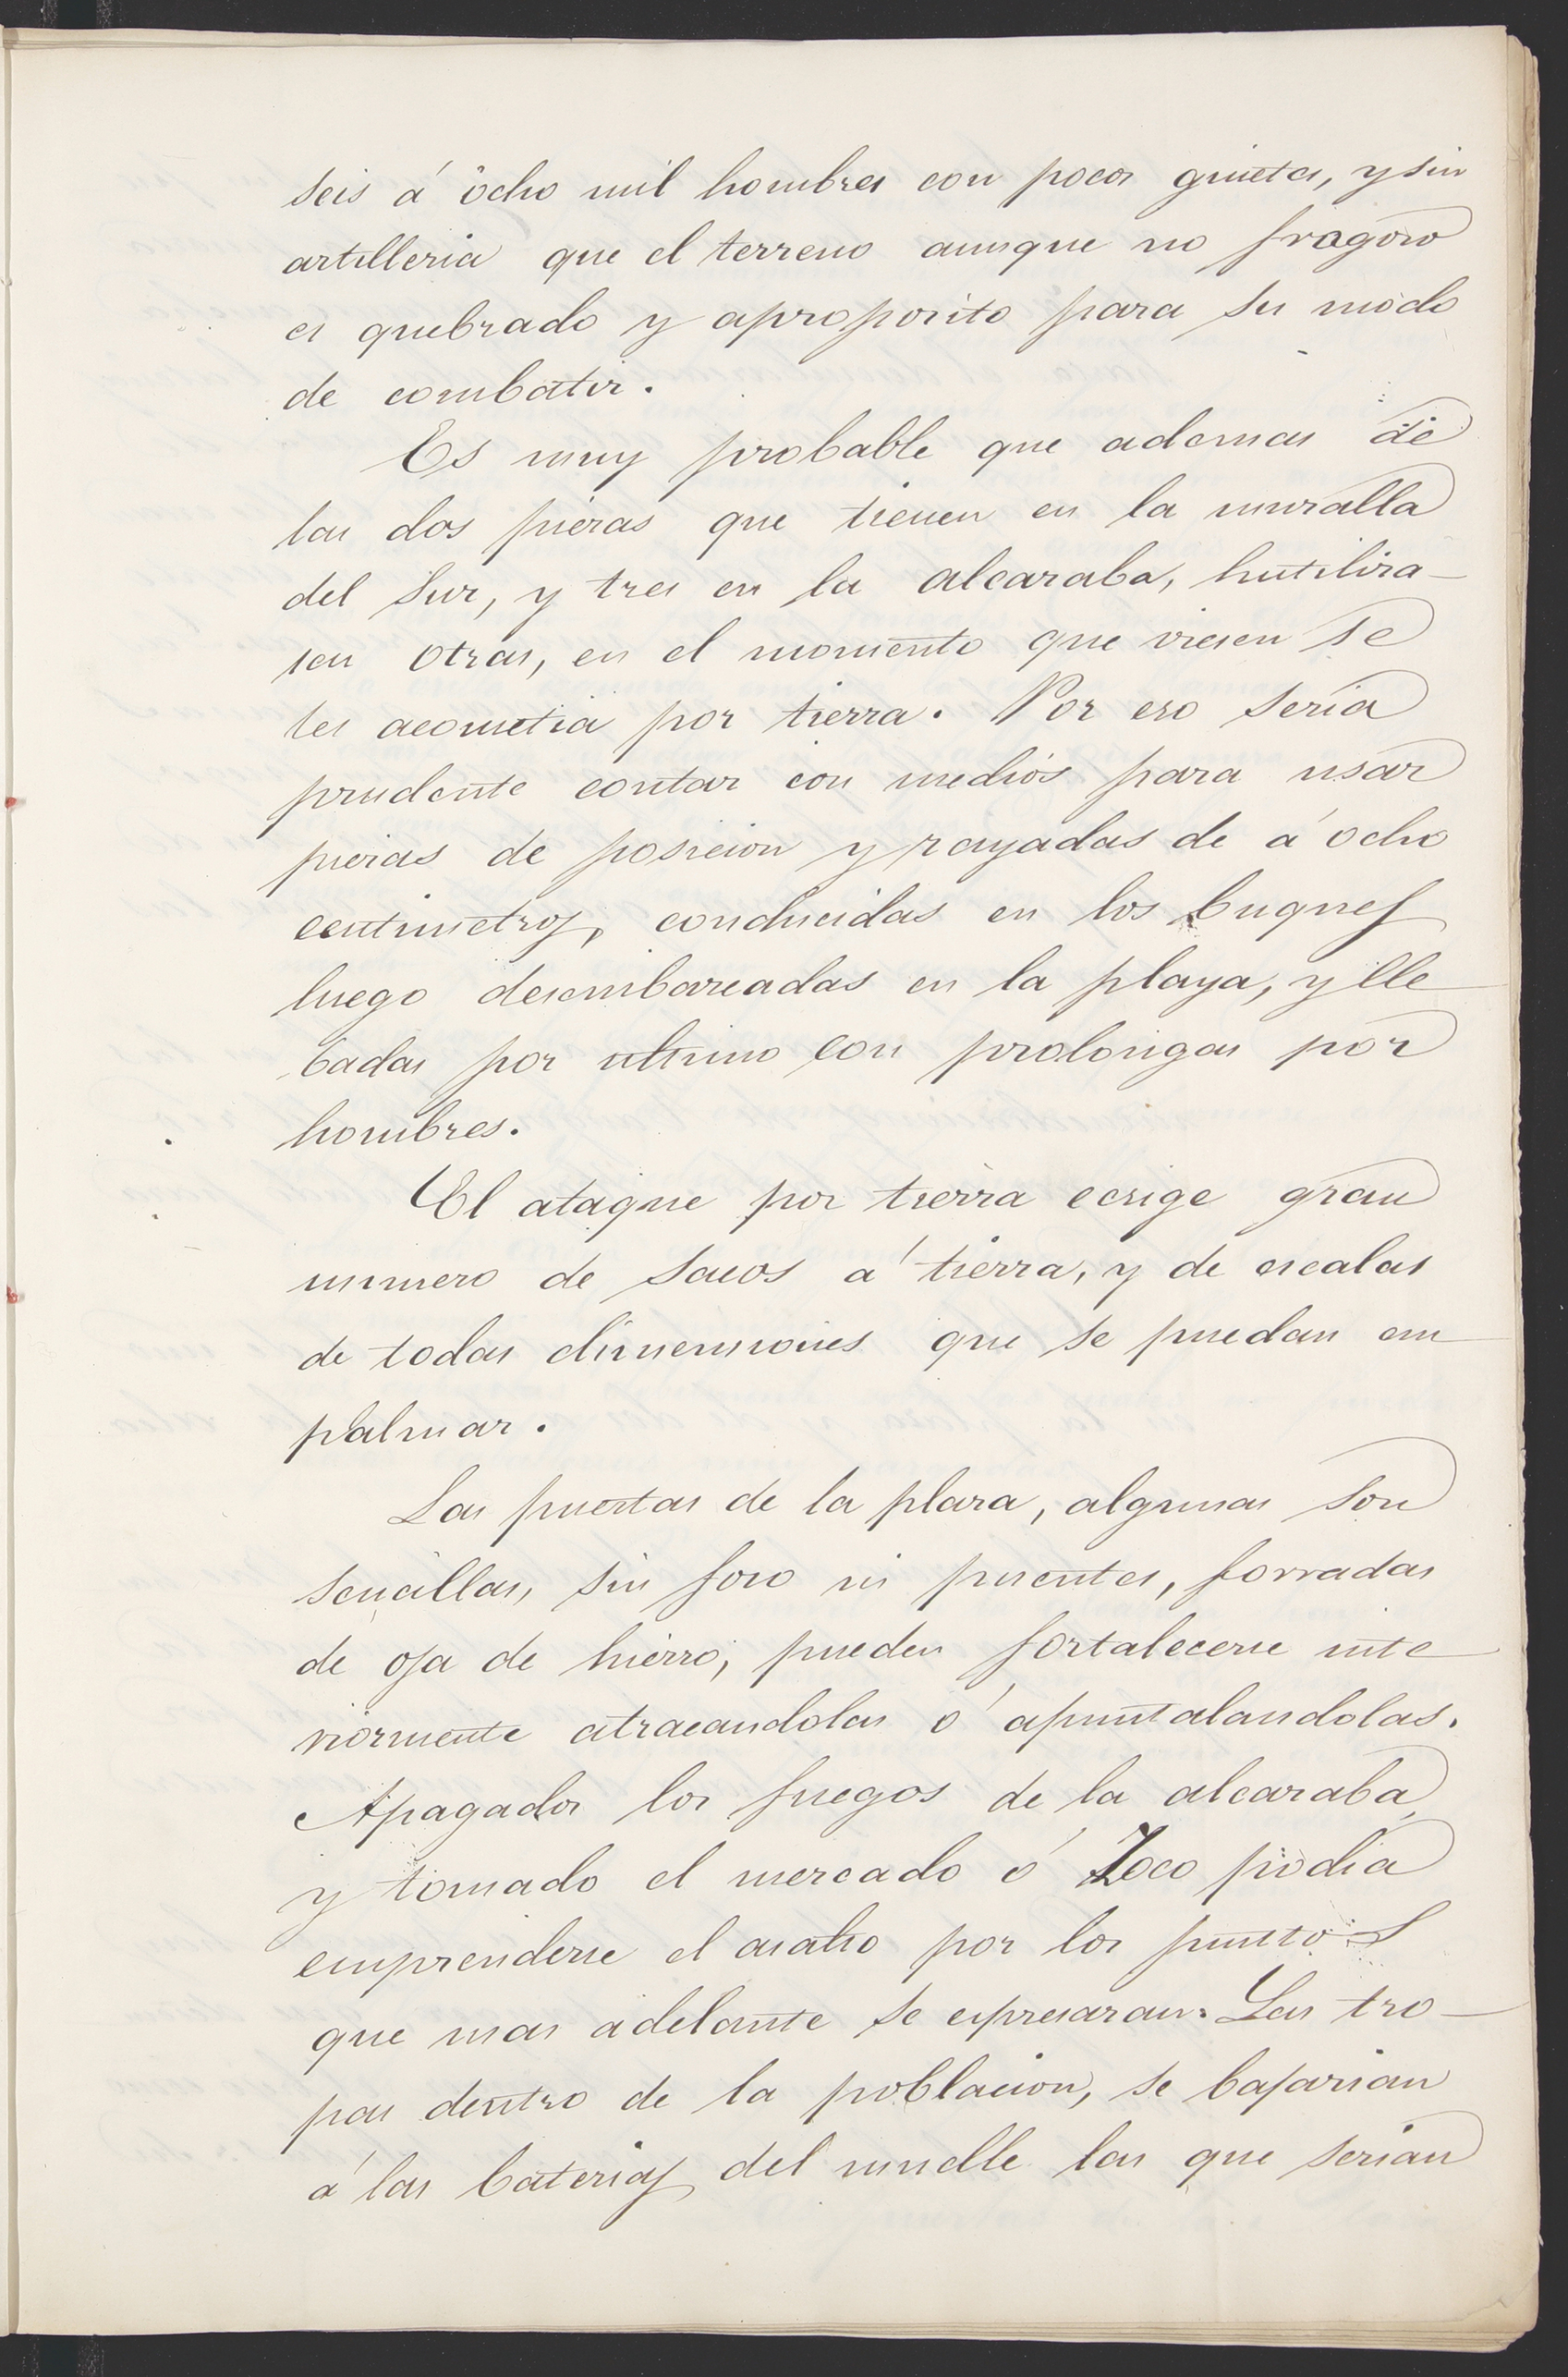 seis á ocho mil hombres con pocos ginetes, y sin
artilleria que el terreno aunque no fragoso
es quebrado y aproposito para su modo
de combatir.
Es muy probable que ademas de
las dos piezas que tienen en la muralla
del Sur, y tres en la alcazaba, hutiliza-
sen otras, en el momento que viesen se
les acometia por tierra. Por eso seria
prudente contar con medios para usar
piezas de posicion y rayadas de á ocho
centimetros, conducidas en los buques
luego desembarcadas en la playa, y lle
badas por ultimo con prolongas por
hombres.
El ataque por tierra ecsige gran
numero de sacos á tierra, y de escalas
de todas dimensiones que se puedan em
palmar.
Las puertas de la plaza, algunas son
sencillas, sin foso ni puentes, forradas
de oja de hierro, pueden fortalecerse inte
riormente atracandolas ó apuntalandolas.
Apagados los fuegos de la alcazaba,
y tomado el mercado ó Zoco podia
emprenderse el asalto por los puntos
que mas adelante se espresaran. Las tro-
pas dentro de la poblacion, se bajarian
á las baterias del muelle las que serian